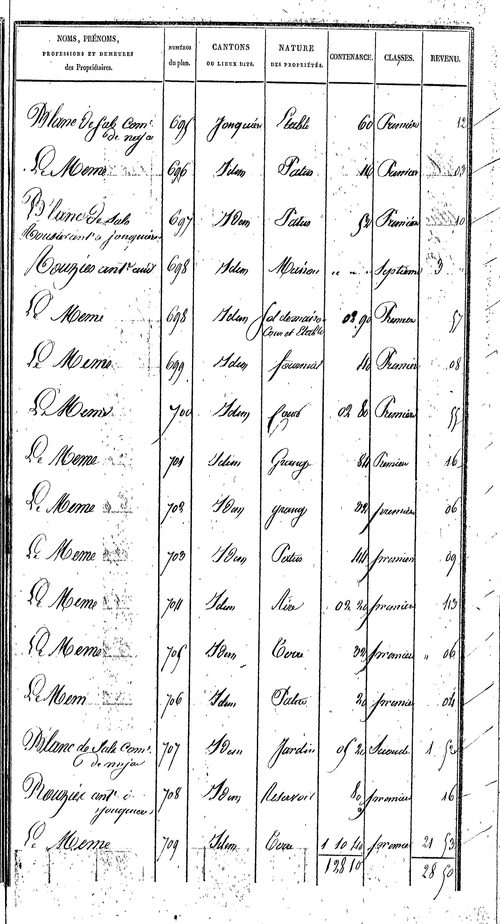 NOMS, PRÉNOMS, PROFESSIONS ET DEMEURES des Propriétaires. NUMÉROS du plan. CANTONS OU LIEUX DITS. NATURE DES PROPRIÉTÉS. CONTENANCE. CLASSES. REVENU.
Blanc de Sale Com. 695 Jonquière Etable 60 Premiere 12
Le Meme 696 Idem Patus 16 Premiere 03
Blanc de Sale 697 Idem Patus 52 Premiere 10
à Jonquiere
Rouziès 698 Idem Maison " " " Septieme 3 "
Le Meme 698 Idem Sol de maison 02 90 Premier 57
Cour et Etable
Le Meme 699 Idem fournial 40 Premier 08
Le Meme 700 Idem Cour 02 80 Premiere 55
Le Meme 701 Idem Grange 84 Premiere 16
Le Meme 702 Idem grange 32 premiere 06
Le Meme 703 Idem Patus 44 premier 09
Le Meme 704 Idem Aire 02 20 premiere 113
Le Meme 705 Idem Terre 32 premiere " 06
Le Mem 706 Idem Patus 20 premie 04
Blanc de Sale Com. 707 Idem Jardin 05 20 Seconde 1 52
Rouziès à 708 Idem Reservoir 80 premiere 16
Jonquiere
Le Meme 709 Idem Terre 1 10 40 premie 21 53
1 28 10 28 50